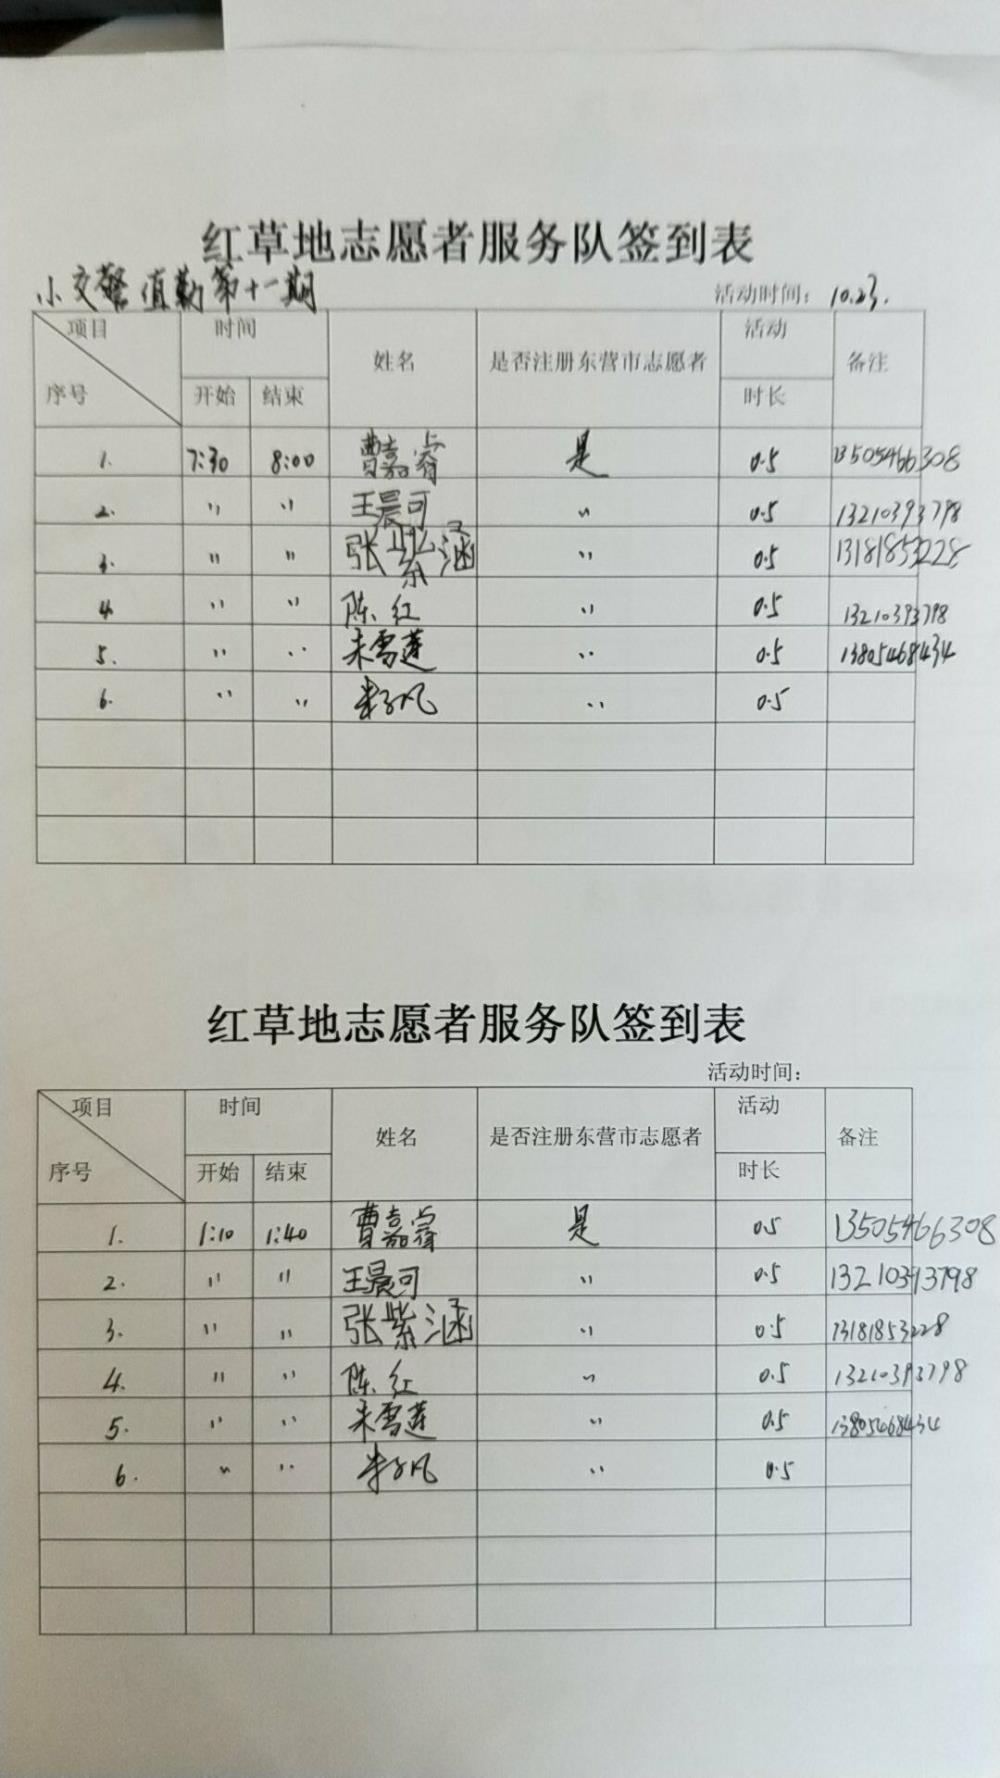 红草地志愿者服务队签到表
小交警值勤第十一期 活动时间: 10.23.
项目 时间 姓名 是否注册东营市志愿者 活动 备注
序号 开始 结束 时长
1. 7:30 8:00 曹嘉睿 是 0.5 13505466308
2. 〃 〃 王晨可 〃 0.5 13210393798
3. 〃 〃 张紫涵 〃 0.5 13181853228
4. 〃 〃 陈红 〃 0.5 13210393798
5. 〃 〃 朱雪莲 〃 0.5 13805468434
6. 〃 〃 〃 0.5
红草地志愿者服务队签到表
活动时间:
项目 时间 姓名 是否注册东营市志愿者 活动 备注
序号 开始 结束 时长
1. 1:10 1:40 曹嘉睿 是 0.5 13505466308
2. 〃 〃 王晨可 〃 0.5 13210393798
3. 〃 〃 张紫涵 〃 0.5 13181853228
4. 〃 〃 陈红 〃 0.5 13210393798
5. 〃 〃 朱雪莲 〃 0.5 13805468434
6. 〃 〃 〃 0.5